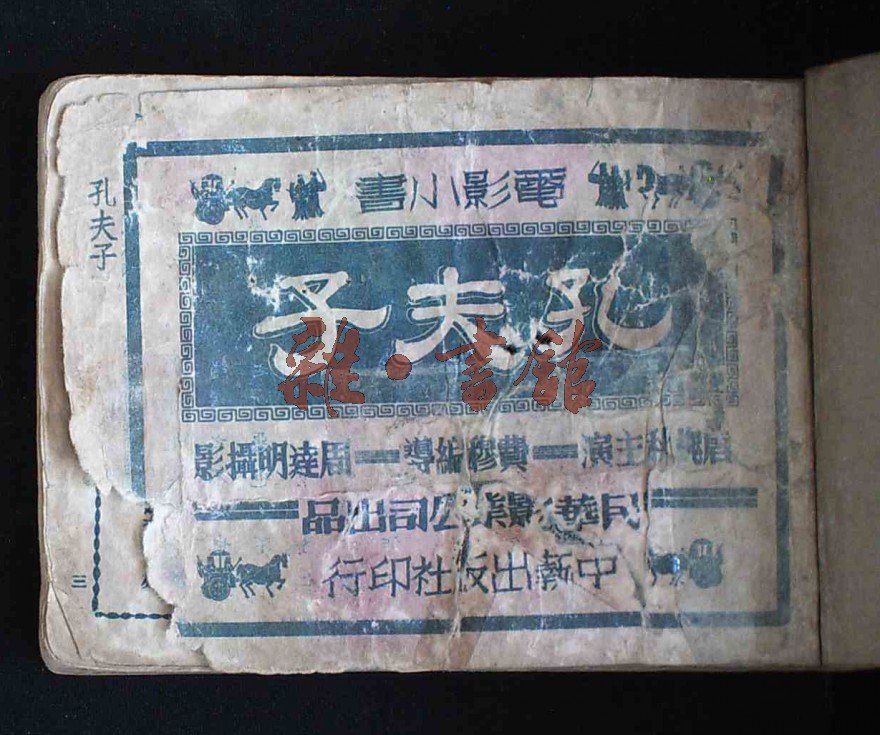 電影小書
孔夫子
唐槐秋主演 — 費穆編導 — 周達明攝影
民華影業公司出品
中新出版社印行
孔夫子
三
雜·書館